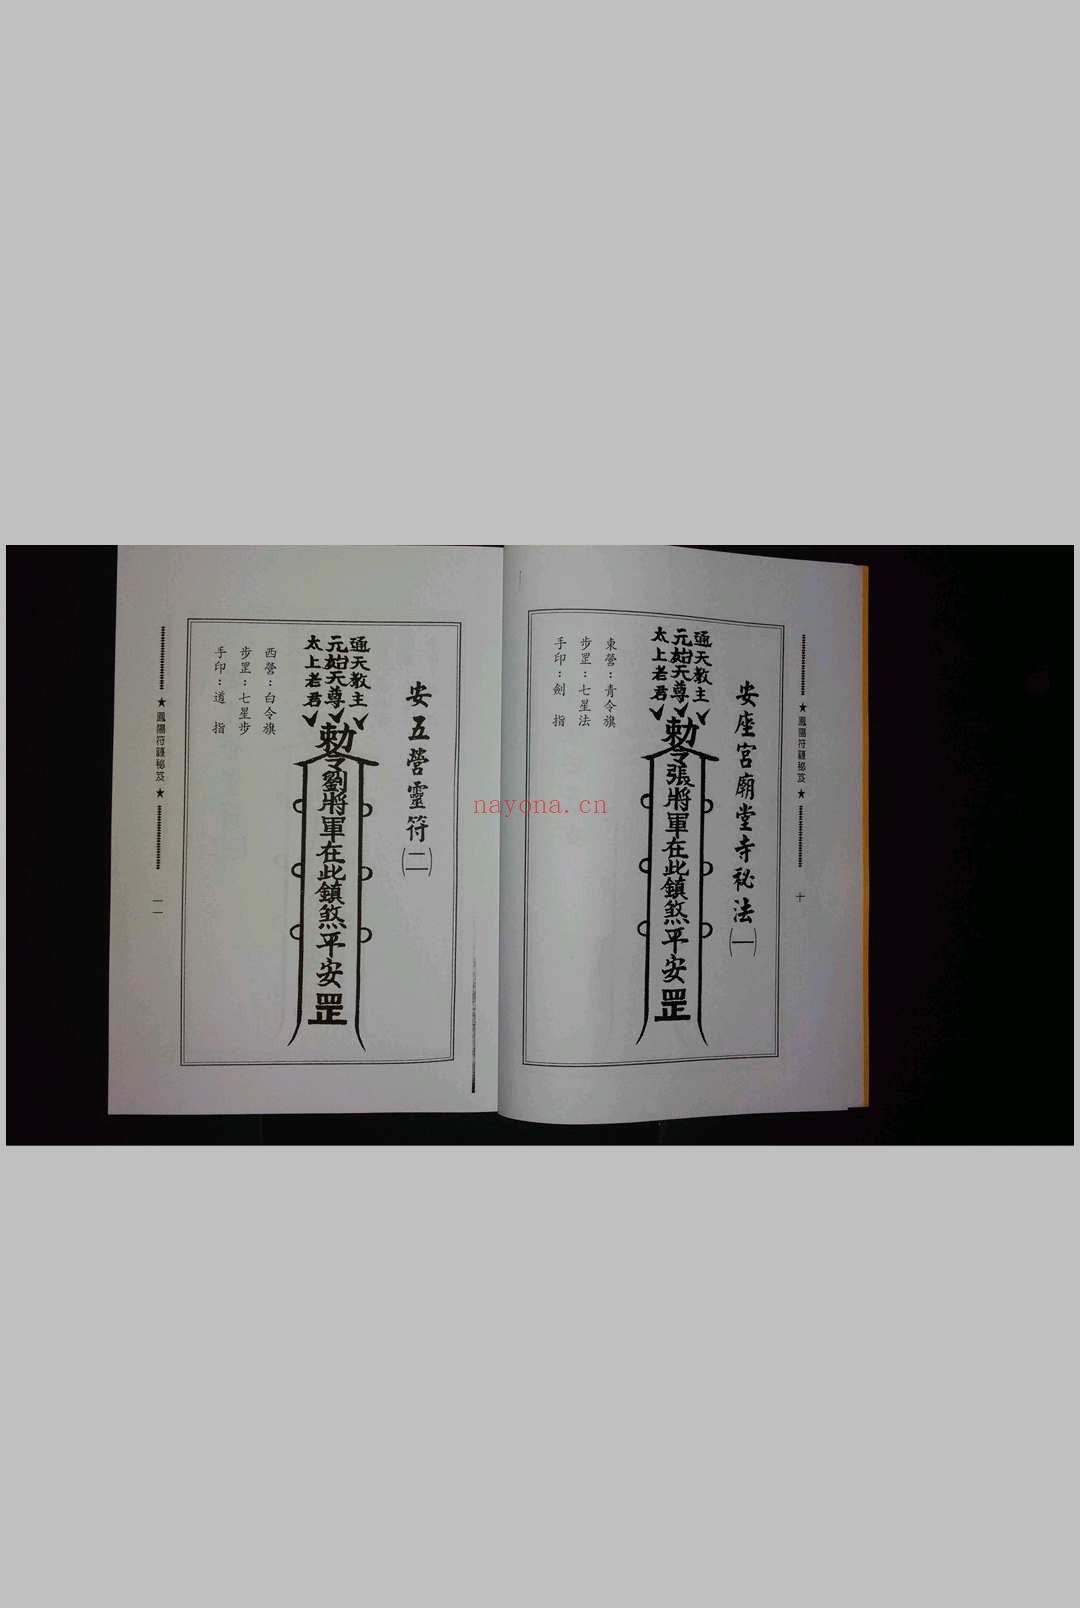 ★鳳陽符籙秘笈★
十
安座宮廟堂寺秘法(一)
通天教主
元始天尊
太上老君
勅令張將軍在此鎮煞平安罡
東營：青令旗
步罡：七星法
手印：劍指
安五營靈符(二)
通天教主
元始天尊
太上老君
勅令劉將軍在此鎮煞平安罡
西營：白令旗
步罡：七星步
手印：道指
★鳳陽符籙秘笈★
一一
nayona.cn